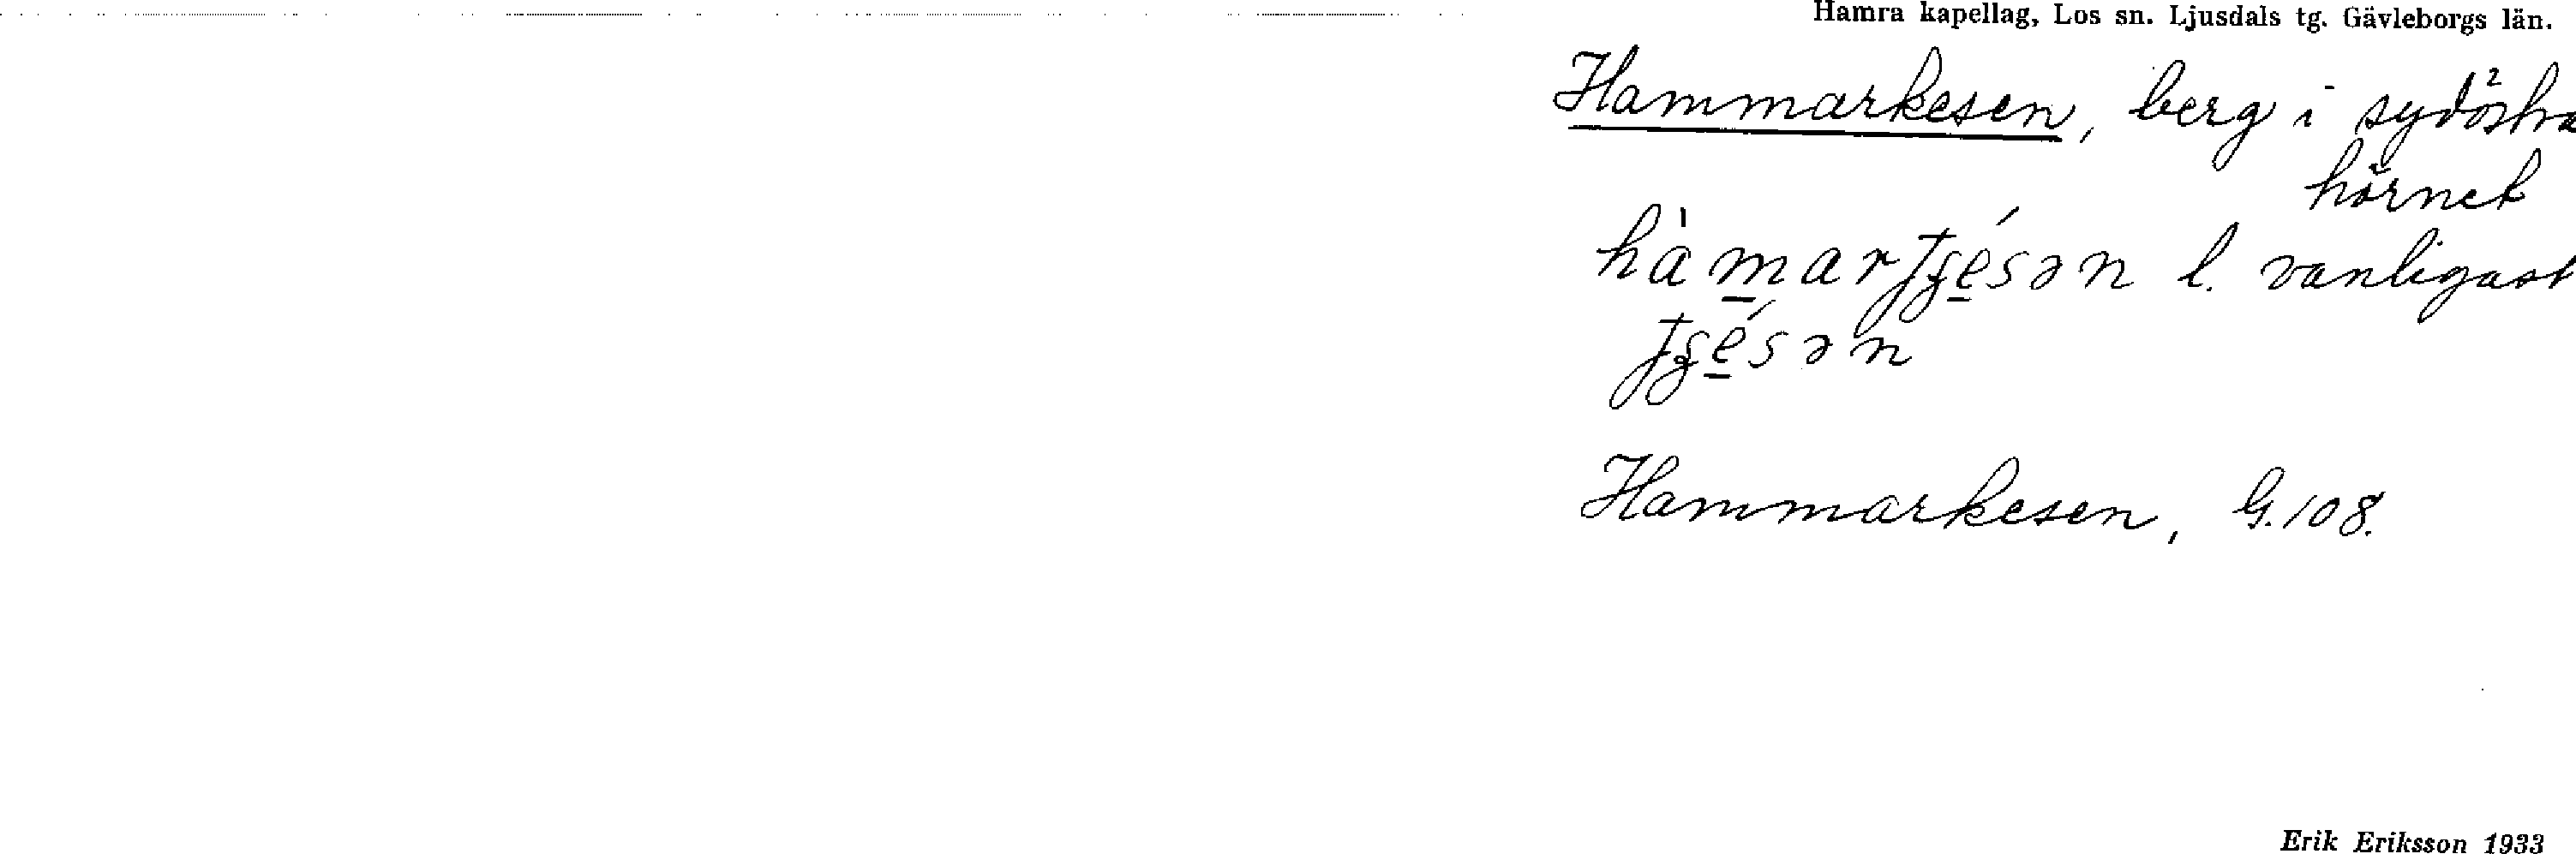 Hamra kapellag, Los sn. Ljusdals tg. Gävleborgs län.
Hammarkesen, berg i sydöstra
hörnet
l. vanligast
Hammarkesen, G. 108.
Erik Eriksson 1933